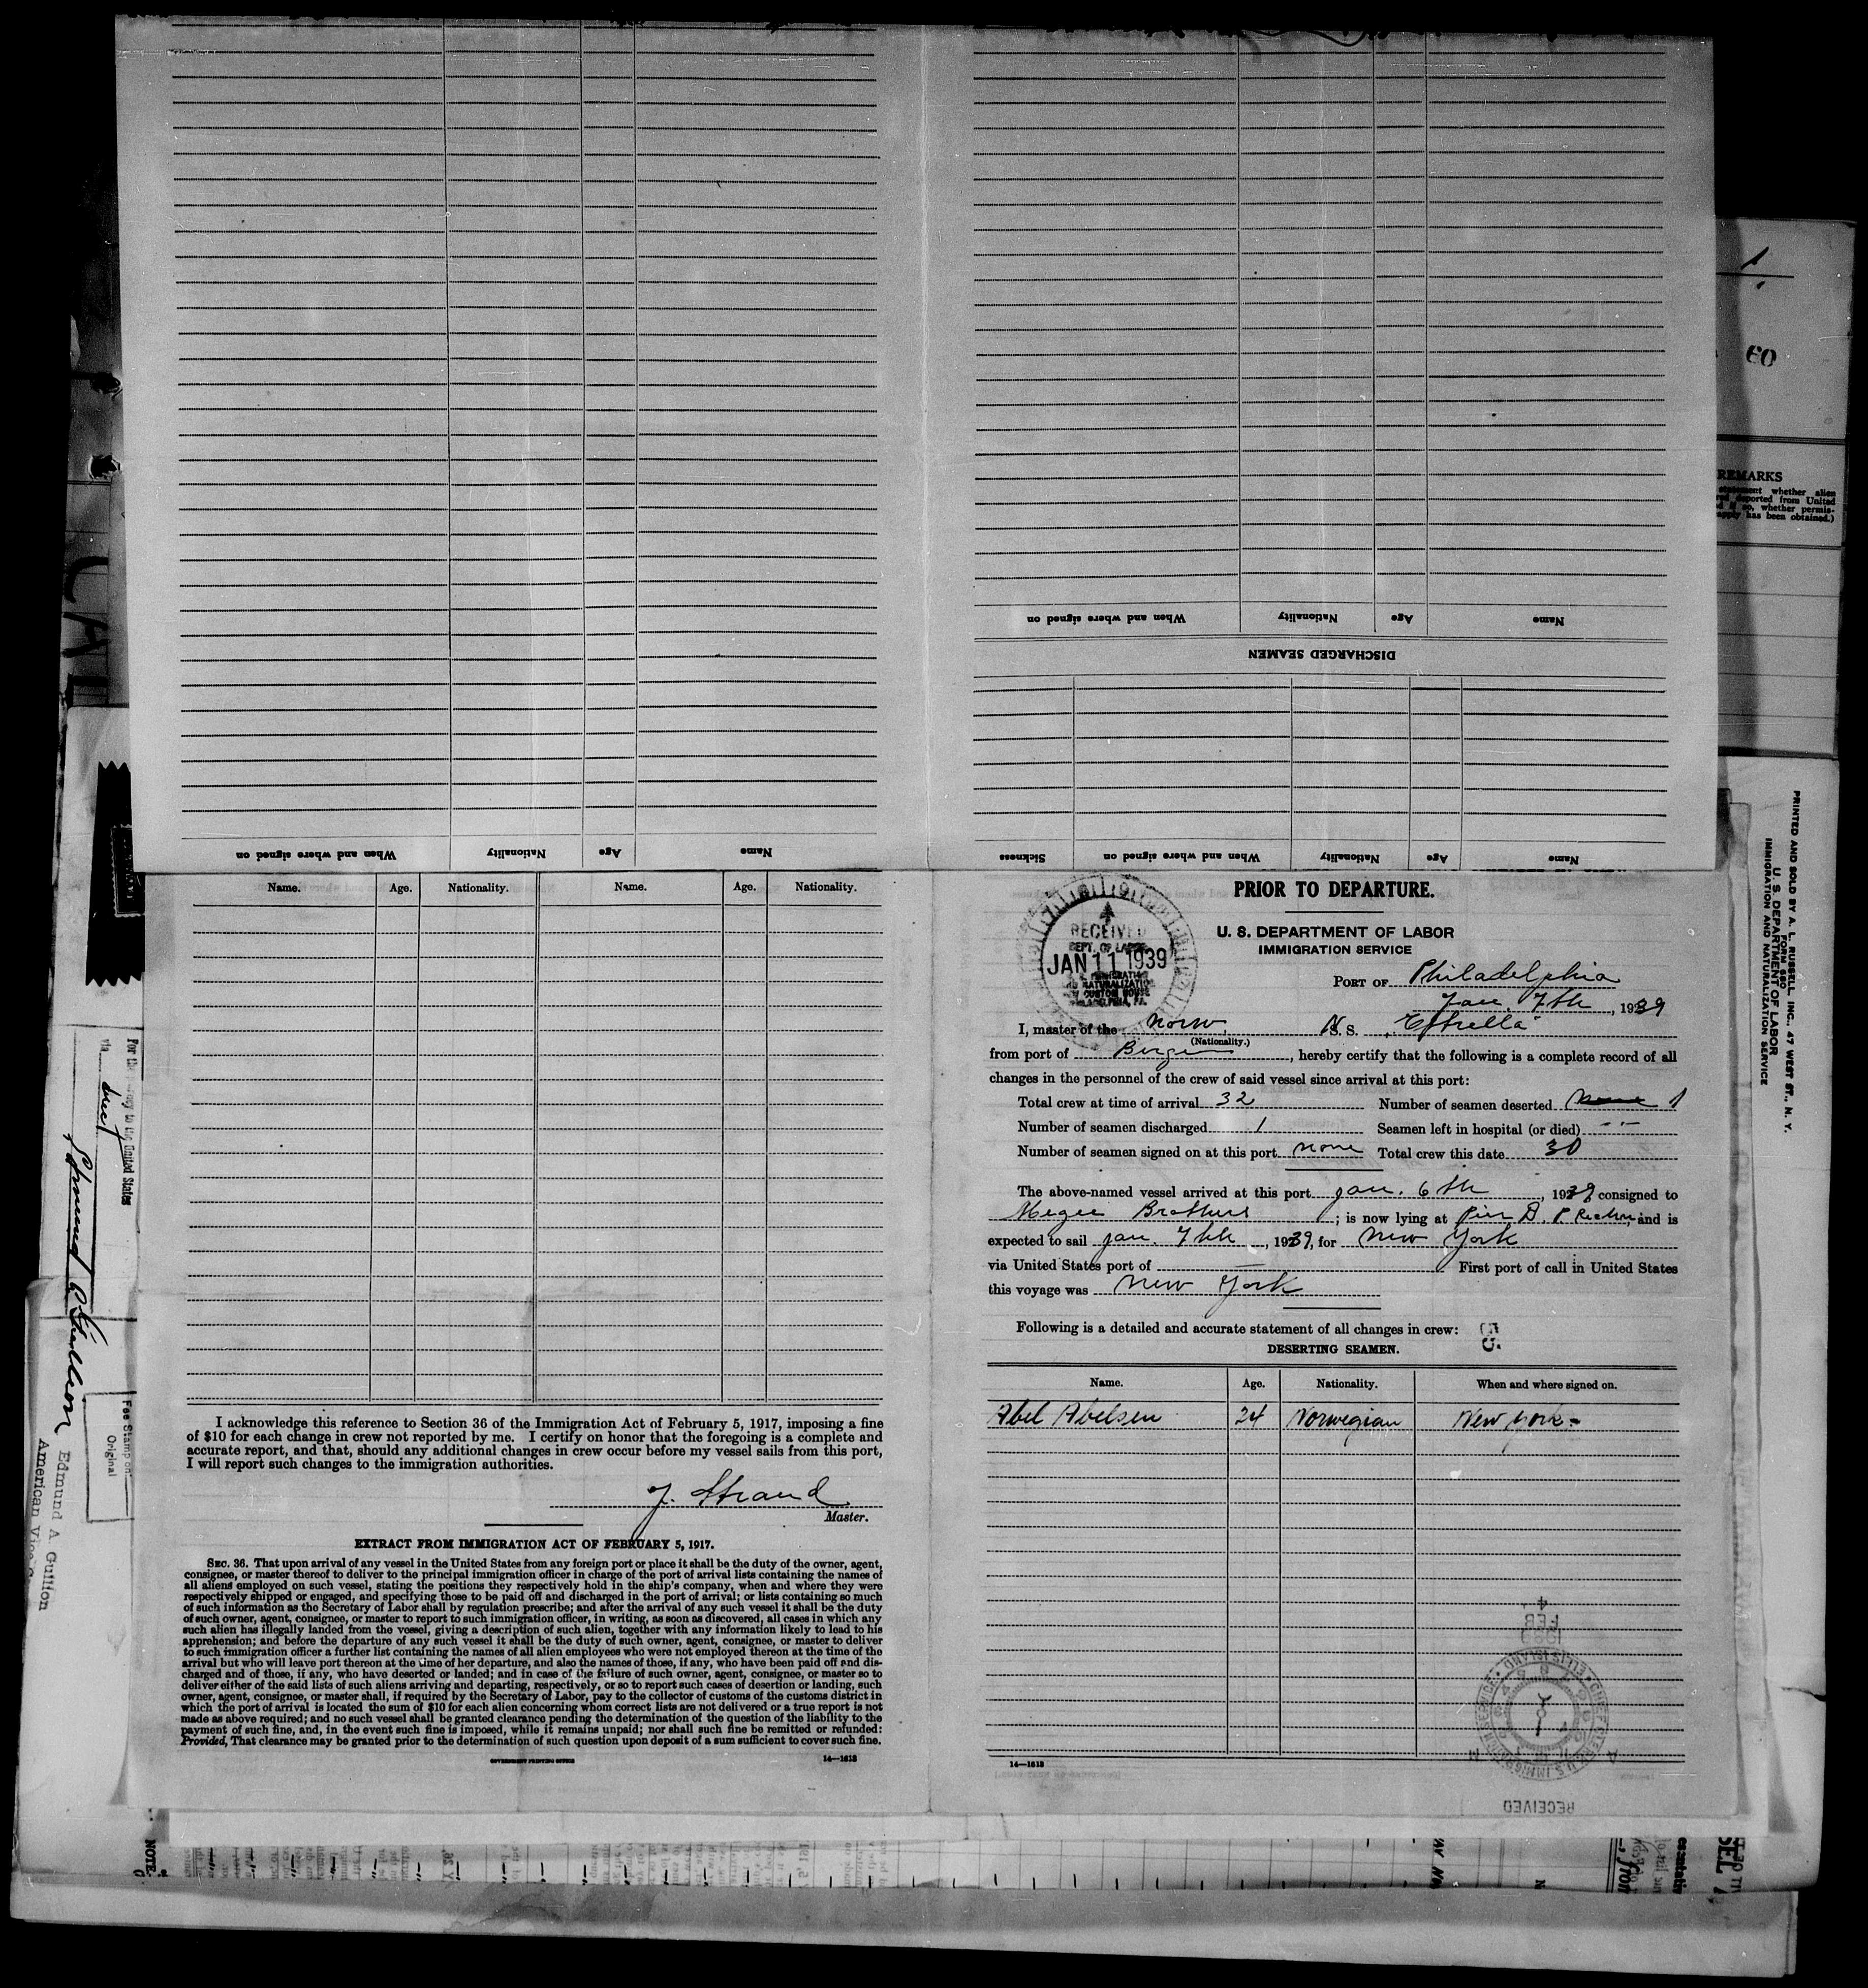 When and where signed on Nationality Age Name
DISCHARGED SEAMEN
Sickness When and where signed on Nationality Age Name
When and where signed on Nationality Age Name
1
60
REMARKS
statement whether alien
deported from United
if so, whether permis-
apply has been obtained.)
PRINTED AND SOLD BY A. L. RUSSELL, INC., 47 WEST ST., N. Y.
U. S. DEPARTMENT OF LABOR
IMMIGRATION AND NATURALIZATION SERVICE
via direct
United States
Fee Stamp on
Original
Edmund A Gullion
American Vice
Name. Age. Nationality. Name. Age. Nationality.
I acknowledge this reference to Section 36 of the Immigration Act of February 5, 1917, imposing a fine
of $10 for each change in crew not reported by me. I certify on honor that the foregoing is a complete and
accurate report, and that, should any additional changes in crew occur before my vessel sails from this port,
I will report such changes to the immigration authorities.
J. Strand
Master.
EXTRACT FROM IMMIGRATION ACT OF FEBRUARY 5, 1917.
SEC. 36. That upon arrival of any vessel in the United States from any foreign port or place it shall be the duty of the owner, agent,
consignee, or master thereof to deliver to the principal immigration officer in charge of the port of arrival lists containing the names of
all aliens employed on such vessel, stating the positions they respectively hold in the ship's company, when and where they were
respectively shipped or engaged, and specifying those to be paid off and discharged in the port of arrival; or lists containing so much
of such information as the Secretary of Labor shall by regulation prescribe; and after the arrival of any such vessel it shall be the duty
of such owner, agent, consignee, or master to report to such immigration officer, in writing, as soon as discovered, all cases in which any
such alien has illegally landed from the vessel, giving a description of such alien, together with any information likely to lead to his
apprehension; and before the departure of any such vessel it shall be the duty of such owner, agent, consignee, or master to deliver
to such immigration officer a further list containing the names of all alien employees who were not employed thereon at the time of the
arrival but who will leave port thereon at the time of her departure, and also the names of those, if any, who have been paid off and dis-
charged and of those, if any, who have deserted or landed; and in case of the failure of such owner, agent, consignee, or master so to
deliver either of the said lists of such aliens arriving and departing, respectively, or so to report such cases of desertion or landing, such
owner, agent, consignee, or master shall, if required by the Secretary of Labor, pay to the collector of customs of the customs district in
which the port of arrival is located the sum of $10 for each alien concerning whom correct lists are not delivered or a true report is not
made as above required; and no such vessel shall be granted clearance pending the determination of the question of the liability to the
payment of such fine, and, in the event such fine is imposed, while it remains unpaid; nor shall such fine be remitted or refunded:
Provided, That clearance may be granted prior to the determination of such question upon deposit of a sum sufficient to cover such fine.
GOVERNMENT PRINTING OFFICE 14—1618
PRIOR TO DEPARTURE.
U. S. DEPARTMENT OF LABOR
IMMIGRATION SERVICE
RECEIVED
DEPT. OF LABOR
JAN 11 1939
CUSTOM HOUSE
PHILADELPHIA, PA.
PORT OF Philadelphia
Jan. 7th, 1939
I, master of the Norw. S. S. "Estrella"
(Nationality.)
from port of Bergen, hereby certify that the following is a complete record of all
changes in the personnel of the crew of said vessel since arrival at this port:
Total crew at time of arrival 32 Number of seamen deserted none 1
Number of seamen discharged 1 Seamen left in hospital (or died) - -
Number of seamen signed on at this port none Total crew this date 30
The above-named vessel arrived at this port Jan. 6th, 1939 consigned to
Megee Brothers; is now lying at Pier D. P. and is
expected to sail Jan. 7th, 1939, for New York
via United States port of — First port of call in United States
this voyage was New York
Following is a detailed and accurate statement of all changes in crew:
DESERTING SEAMEN.
Name. Age. Nationality. When and where signed on.
Abel Abelsen 24 Norwegian New York -
14—1618
FEB 4
ELLIS ISLAND
RECEIVED
NOTE